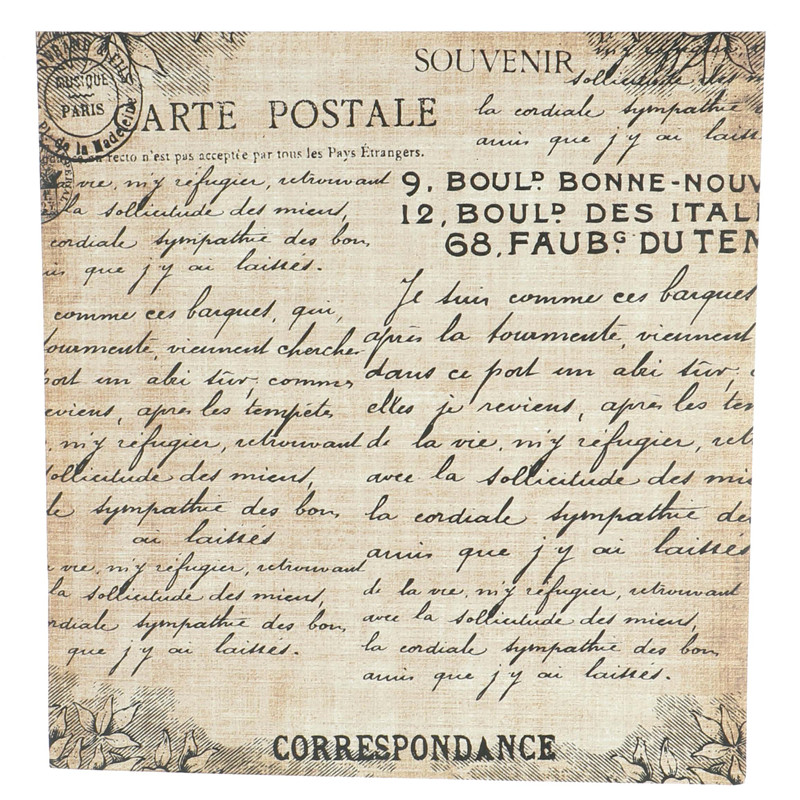 GRAND & FILS
MUSIQUE
PARIS
Pl. de la Madeleine
SOUVENIR
n'y réfugier,
sollicitude des m
la cordiale sympathie
amis que j'y ai laiss
CARTE POSTALE
recto n'est pas acceptée par tous les Pays Étrangers.
vie, m'y réfugier, retrouvant
la sollicitude des miens,
cordiale sympathie des bon
is que j'y ai laissés.
9, BOULD BONNE-NOUV
12, BOULD DES ITALI
68, FAUBG DU TEM
comme ces barques, qui,
tourmente, viennent cherche
port un abri sûr, comme
eviens, après les tempêtes
n'y réfugier, retrouvant
sollicitude des miens,
le sympathie des bon
ai laissés
vie, m'y réfugier, retrouvant
la sollicitude des miens,
rdiale sympathie des bon
que j'y ai laissés.
Je suis comme ces barques
après la tourmente, viennent
dans ce port un abri sûr, c
elles je reviens, après les tem
de la vie, m'y réfugier, retr
avec la sollicitude des mie
la cordiale sympathie des
amis que j'y ai laissés
de la vie, m'y réfugier, retrouvant
avec la sollicitude des miens,
la cordiale sympathie des bon
amis que j'y ai laissés.
CORRESPONDANCE